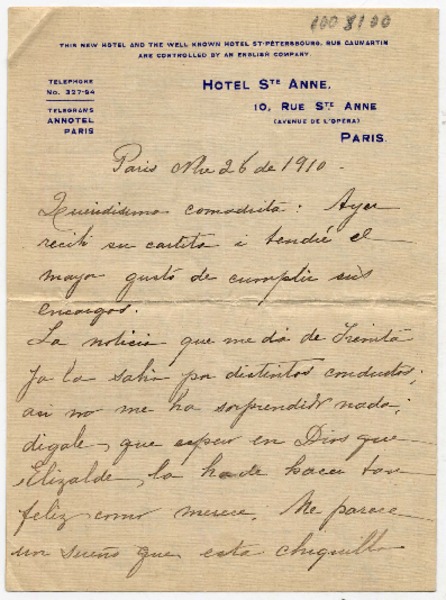 1008100
THIS NEW HOTEL AND THE WELL KNOWN HOTEL ST-PÉTERSBOURG, RUE CAUMARTIN
ARE CONTROLLED BY AN ENGLISH COMPANY.
TELEPHONE
No. 327-94
TELEGRAMS
ANNOTEL
PARIS
HOTEL STE ANNE.
10, RUE STE ANNE
(AVENUE DE L'OPÉRA)
PARIS.
Paris Nbre 26 de 1910.
Queridisima comadrita: Ayer
recibí su cartita i tendré el
mayor gusto de cumplir sus
encargos.
La noticia que me da de Trinita
ya la sabia por distintos conductos;
asi no me ha sorprendido nada;
digale, que espero en Dios que
Elizalde, la ha de hacer tan
feliz como merece. Me parece
un sueño que esta chiquilla